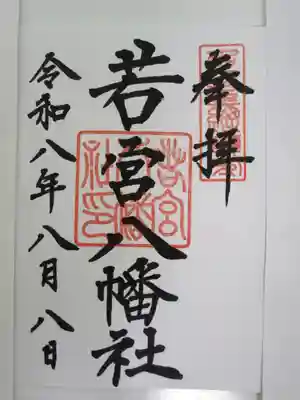 奉拝
若宮八幡社
令和八年八月八日